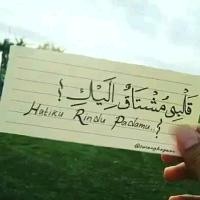 قَلْبِيْ مُشْتَاقٌ إِلَيْكِ !
Hatiku Rindu Padamu..!